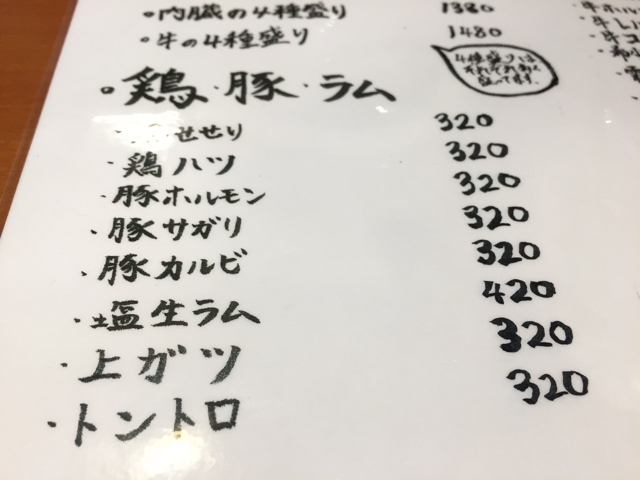 ・内臓の4種盛り 1380
・牛の4種盛り 1480
4種盛りは
。鶏・豚・ラム
せせり 320
・鶏ハツ 320
・豚ホルモン 320
・豚サガリ 320
・豚カルビ 320
・塩生ラム 420
・上ガツ 320
・トントロ 320